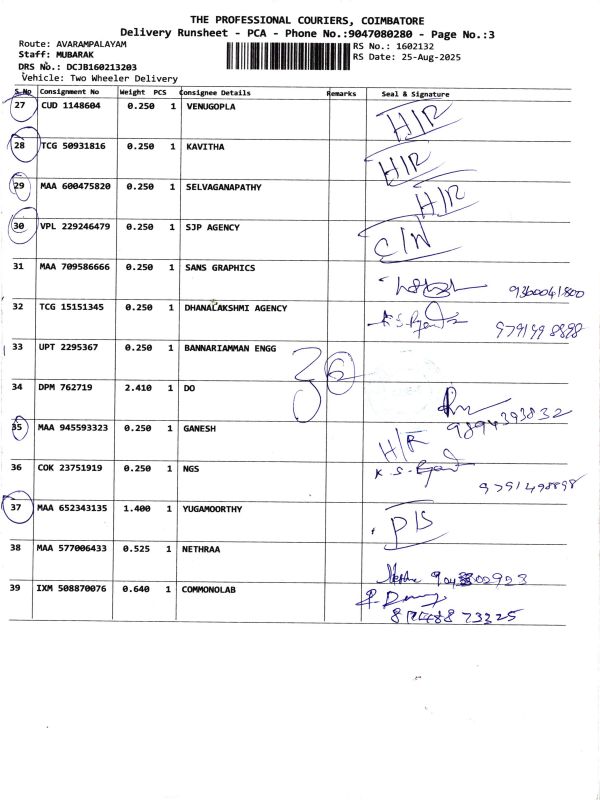 THE PROFESSIONAL COURIERS, COIMBATORE
Delivery Runsheet - PCA - Phone No.:9047080280 - Page No.:3
Route: AVARAMPALAYAM
Staff: MUBARAK RS No.: 1602132
DRS No.: DCJB160213203 RS Date: 25-Aug-2025
Vehicle: Two Wheeler Delivery
S.No Consignment No Weight PCS Consignee Details Remarks Seal & Signature
27 CUD 1148604 0.250 1 VENUGOPLA H/R
28 TCG 50931816 0.250 1 KAVITHA H/R
29 MAA 600475820 0.250 1 SELVAGANAPATHY H/R
30 VPL 229246479 0.250 1 SJP AGENCY C/N
31 MAA 709586666 0.250 1 SANS GRAPHICS 9360041800
32 TCG 15151345 0.250 1 DHANALAKSHMI AGENCY 9791498898
33 UPT 2295367 0.250 1 BANNARIAMMAN ENGG
34 DPM 762719 2.410 1 DO 9894393832
35 MAA 945593323 0.250 1 GANESH H/R
36 COK 23751919 0.250 1 NGS K S 9791498898
37 MAA 652343135 1.400 1 YUGAMOORTHY P/S
38 MAA 577006433 0.525 1 NETHRAA
39 IXM 508870076 0.640 1 COMMONOLAB